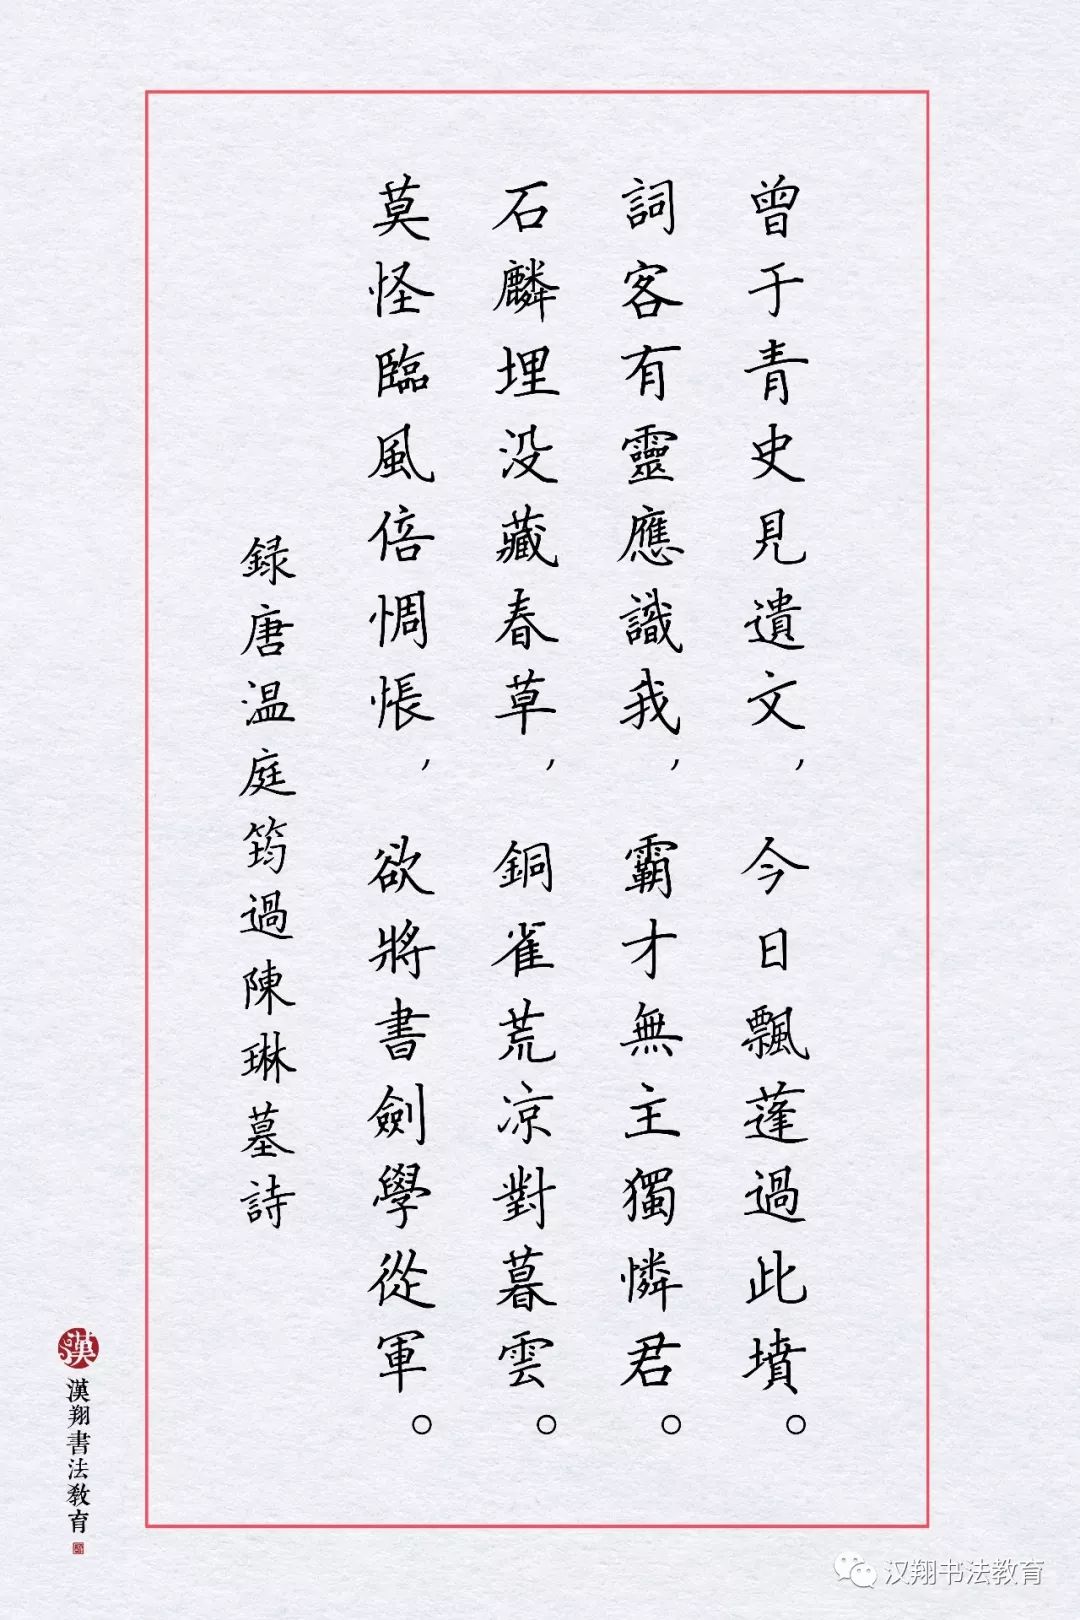 曾于青史見遺文，今日飄蓬過此墳。
詞客有靈應識我，霸才無主獨憐君。
石麟埋没藏春草，銅雀荒凉對暮雲。
莫怪臨風倍惆悵，欲將書劍學從軍。
録唐温庭筠過陳琳墓詩
漢
漢翔書法教育
汉翔书法教育